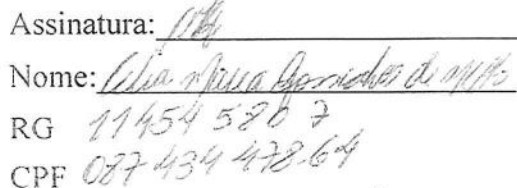 Assinatura:
Nome: Célia Maria Gonsalves de Mello
RG 11454 580 7
CPF 087 434 478.64